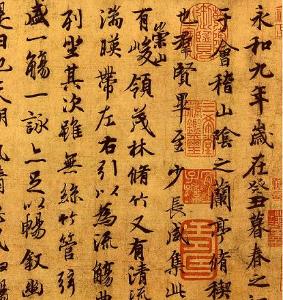 永和九年歲在癸丑暮春之
于會稽山陰之蘭亭脩稧
也羣賢畢至少長咸集此
有崇山峻領茂林脩竹又有清流
湍暎帶左右引以為流觴曲
列坐其次雖無絲竹管弦
盛一觴一詠亦足以暢敘幽
是日也天朗氣清